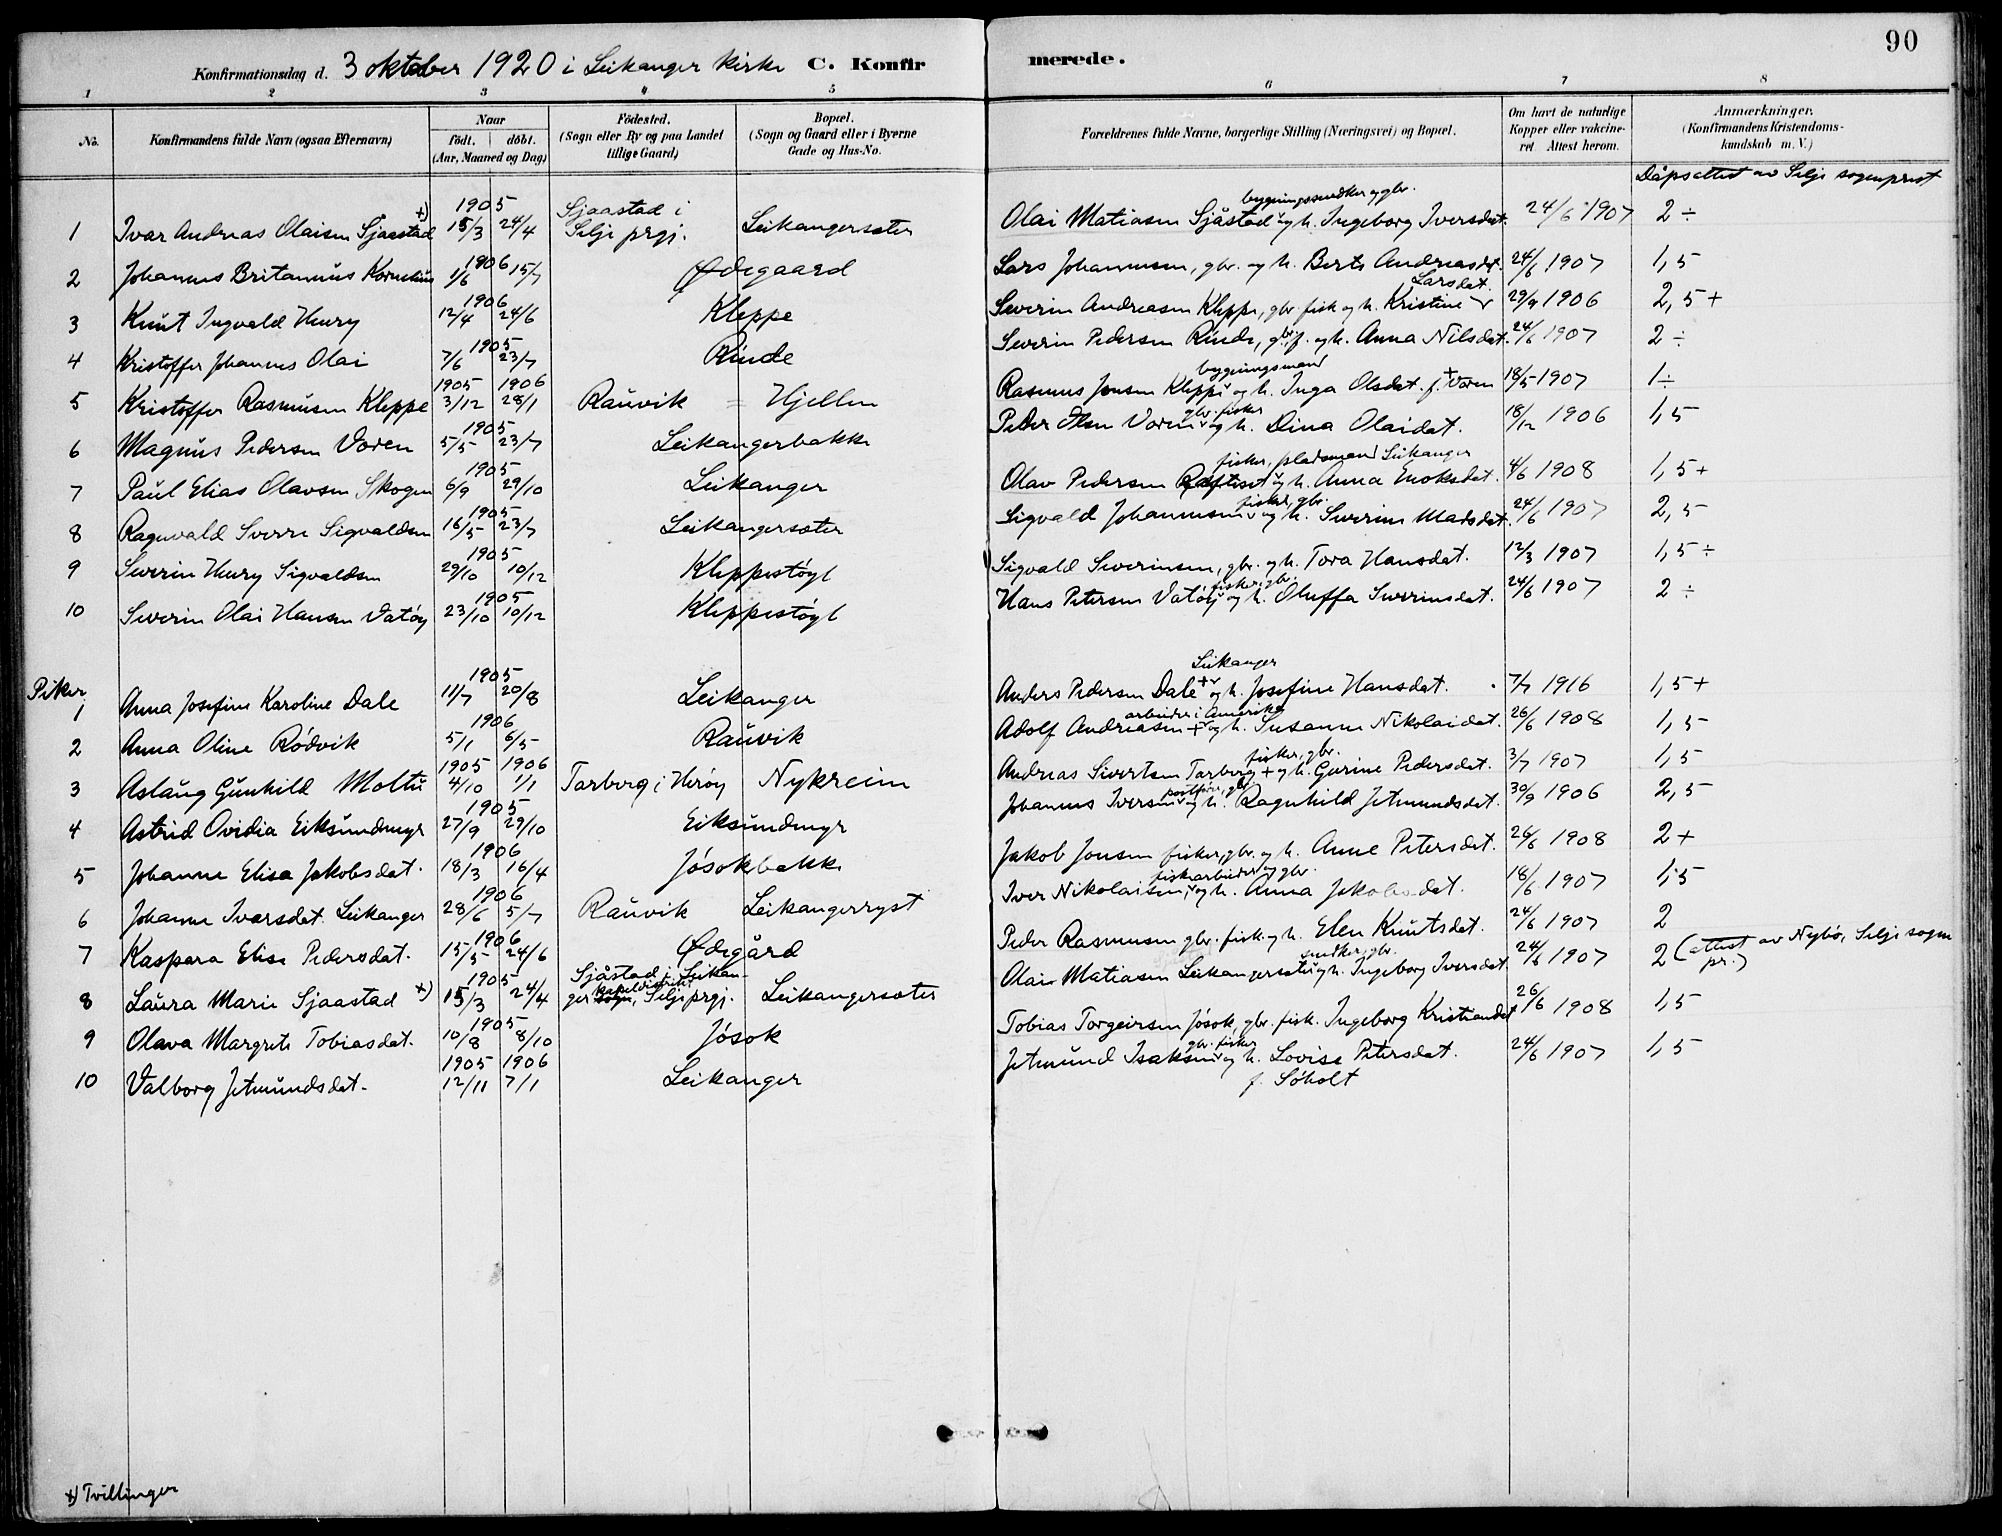 90
Konfirmationsdag d. 3 oktober 1920 i Leikanger kirke C. Konfirmerede.
1 2 3 4 5 6 7 8
No. Konfirmandens fulde Navn (ogsaa Efternavn) Naar födt. döbt. (Aar, Maaned og Dag) Födested. (Sogn eller By og paa Landet tillige Gaard) Bopæl. (Sogn og Gaard eller i Byerne Gade og Hus-No. Forældrenes fulde Navne, borgerlige Stilling (Næringsvei) og Bopæl. Om havt de naturlige Kopper eller vakcineret Attest herom. Anmærkninger. (Konfirmandens Kristendomskundskab m. V.)
Dåpsattest av Selje sogneprest
1 Ivar Andreas Olaisen Sjaastad +) 1905 15/3 24/4 Sjaastad i Selje prgj. Leikangersæter Olai Matiasen Sjåstad bygningssnedker og gbr. og h. Ingeborg Iversdat. 24/6 1907 2 ÷
2 Johannes Britannus Kornelius 1906 1/6 15/7 Ødegaard Lars Johannesen, gbr. og h. Berte Andreasdat. 24/6 1907 1,5
3 Knut Ingvald Henry 1906 12/4 24/6 Kleppe Severin Andreasen Kleppe, gbr. fisk og h. Kristine Larsdat. 29/9 1906 2,5 +
4 Kristoffer Johannes Olai 1905 7/6 23/7 Rinde Severin Pedersen Rinde, gbr. f. og h. Anna Nilsdat. 24/6 1907 2 ÷
5 Kristoffer Rasmusen Kleppe 1905 3/12 1906 28/1 Rauvik = Hjellen Rasmus Jensen Kleppe bygningsmand og h. Inga Olsdat. f. Voren + 18/5 1907 1 ÷
6 Magnus Pedersen Voren 1905 5/5 23/7 Leikangerbakke Peder Olsen Voren gbr. fisker og h. Dina Olaidat. 18/12 1906 1,5
7 Paul Elias Olavsen Skogen 1905 6/9 29/10 Leikanger Olav Pedersen fisker, pladsmand Leikanger og h. Anna Enoksdat. 4/6 1908 1,5 +
8 Ragnvald Sverre Sigvaldsen 1905 16/5 23/7 Leikangersæter Sigvald Johannesen fisker, gbr. og h. Severine Madsdat. 24/6 1907 2,5
9 Severin Henry Sigvaldsen 1905 29/10 10/12 Kleppestøyl Sigvald Severinsen, gbr. og h. Tora Hansdat. 12/3 1907 1,5 ÷
10 Severin Olai Hansen Vatöy 1905 23/10 10/12 Kleppestøyl Hans Petersen Vatöy fisker, gbr. og h. Oluffa Severinsdat. 24/6 1907 2 ÷
Piker
1 Anna Josefine Karoline Dale 1905 11/7 20/8 Leikanger Anders Pedersen Dale + Leikanger og h. Josefine Hansdat. 7/7 1916 1,5 +
2 Anna Oline Rødvik 1906 5/1 6/5 Rauvik Adolf Andreasen + arbeider i Amerika og h. Susanne Nikolaidat. 26/6 1908 1,5
3 Aslaug Gunhild Moltu 1905 4/10 1906 1/1 Tarberg i Herøy Nykreim Andreas Sivertsen Tarberg + fisker, gbr. og h. Gurine Pedersdat. 3/7 1907 1,5
4 Astrid Ovidia Eiksundmyr 1905 27/9 29/10 Eiksundmyr Johannes Iversen og h. Ragnhild Jetmundsdat. 30/9 1906 2,5
5 Johanne Elisa Jakobsdat. 1906 18/3 16/4 Jósokbakke Jakob Jonsen fisker, gbr. og h. Anne Petersdat. 26/6 1908 2 +
6 Johanne Ivarsdat. Leikanger 1906 28/6 5/7 Rauvik Leikangerryst Iver Nikolaisen, fiskarbeider og gbr. og h. Anna Jakobsdat. 18/6 1907 1,5
7 Kaspara Elise Pedersdat. 1906 15/5 24/6 Ødegård Peder Rasmusen gbr. fisk. og h. Elen Knutsdat. 24/6 1907 2
8 Laura Marie Sjaastad +) 1905 15/3 24/4 Sjåstad i Leikanger kapeldistrikt sogn, Selje prgj. Leikangersæter Olai Matiasen Leikangersæter snedker, gbr. og h. Ingeborg Iversdat. 24/6 1907 2 (attest av Nybø, Selje sogn pr.)
9 Olava Margrete Tobiasdat. 1905 10/8 8/10 Jósok Tobias Torgeirsen Jósok, gbr. fisk. Ingeborg Kristiandat 26/6 1908 1,5
10 Valborg Jetmundsdat. 1905 12/11 1906 7/1 Leikanger Jetmund Isaksen gbr. fisker og h. Lovise Petersdat. f. Søholt 24/6 1907 1,5
+) Tvillinger